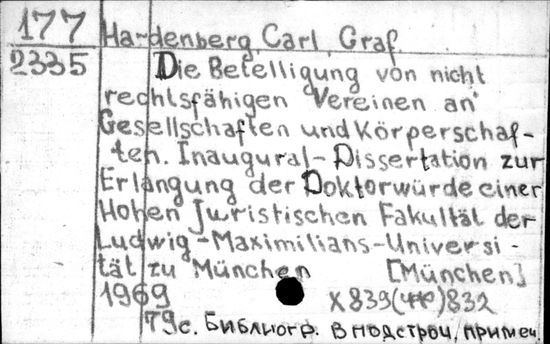 177
2335
Hardenberg, Carl Graf
Die Beteiligung von nicht
rechtsfähigen Vereinen an
Gesellschaften und Körperschaf-
ten. Inaugural-Dissertation zur
Erlangung der Doktorwürde einer
Hohen Juristischen Fakultät der
Ludwig-Maximilians-Universi-
tät zu München [München]
1969
X839( )832
79с. Библиогр. в подстроч. примеч.